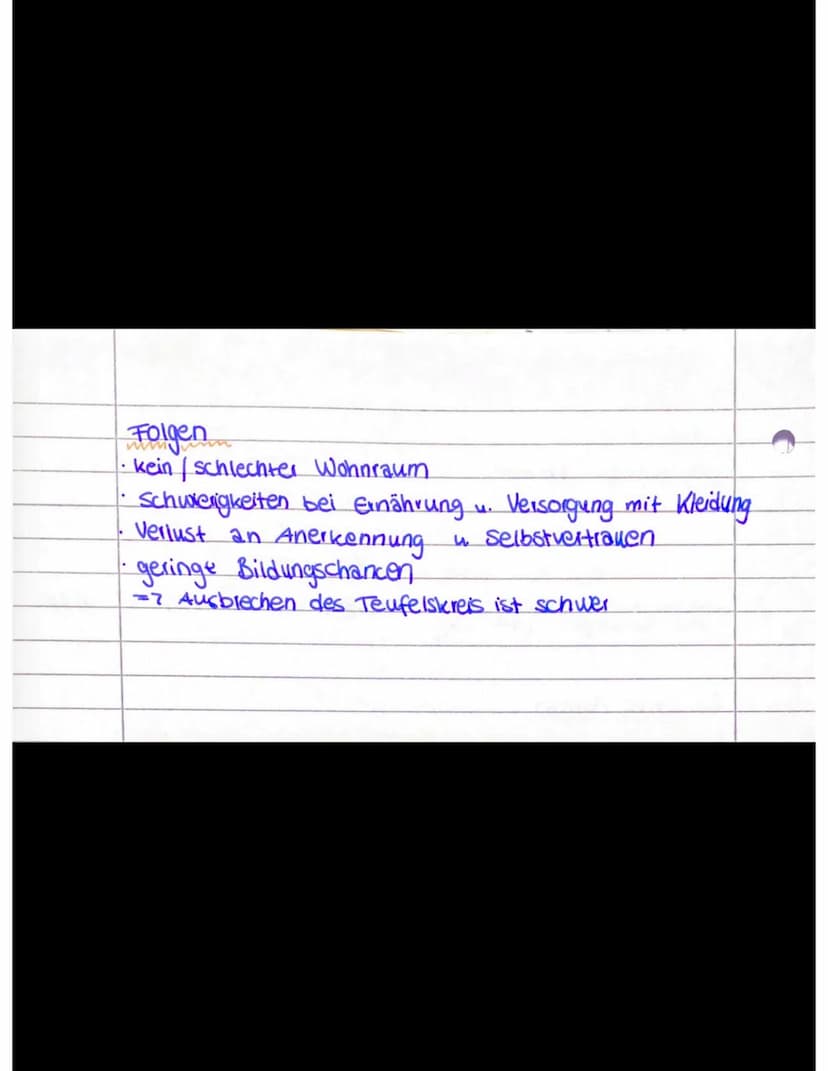 Folgen
· kein / schlechter Wohnraum
· Schwierigkeiten bei Ernährung u. Versorgung mit Kleidung
· Verlust an Anerkennung u Selbstvertrauen
· geringe Bildungschancen
=> Ausbrechen des Teufelskreis ist schwer